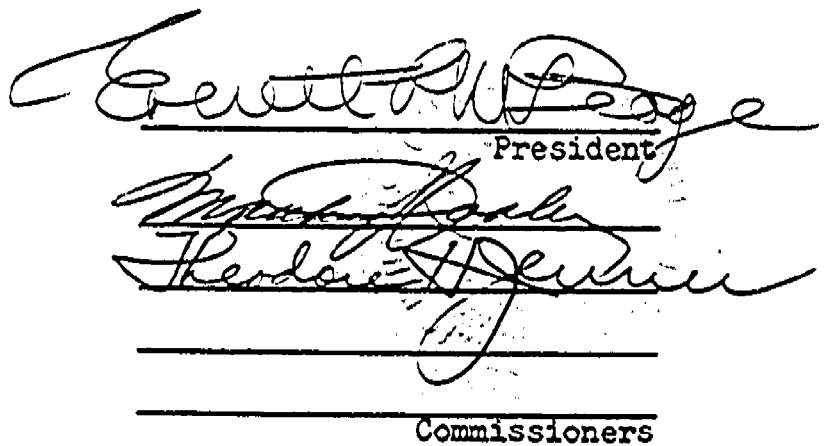 Everett C. McKeage
President
Theodore H. Jenner
Commissioners